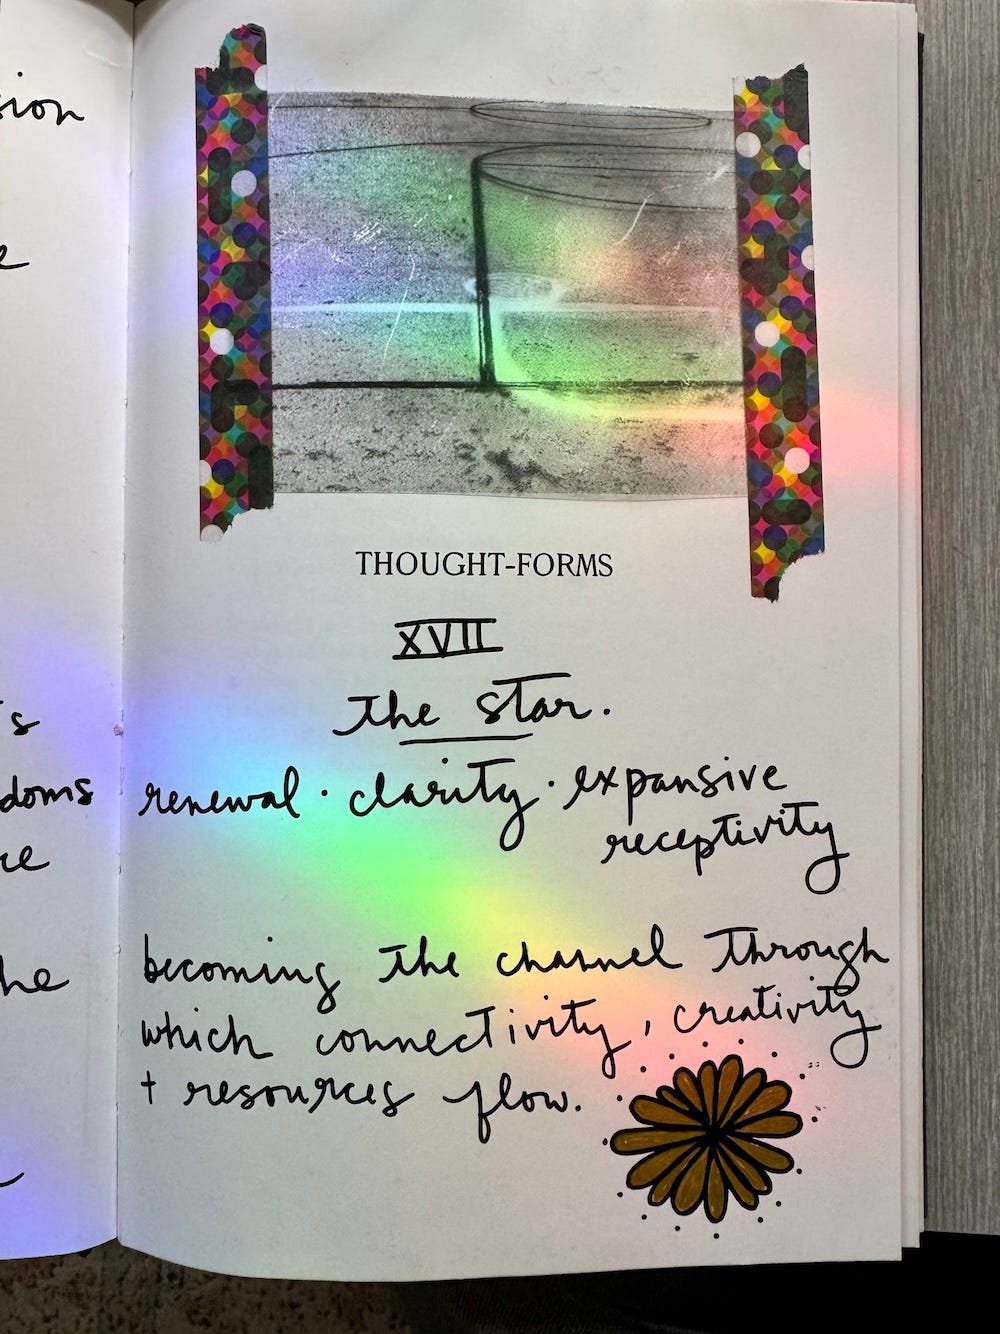 sion
doms
THOUGHT-FORMS
XVII
The Star.
renewal · clarity · expansive
receptivity
becoming the channel through
which connectivity, creativity
+ resources flow.